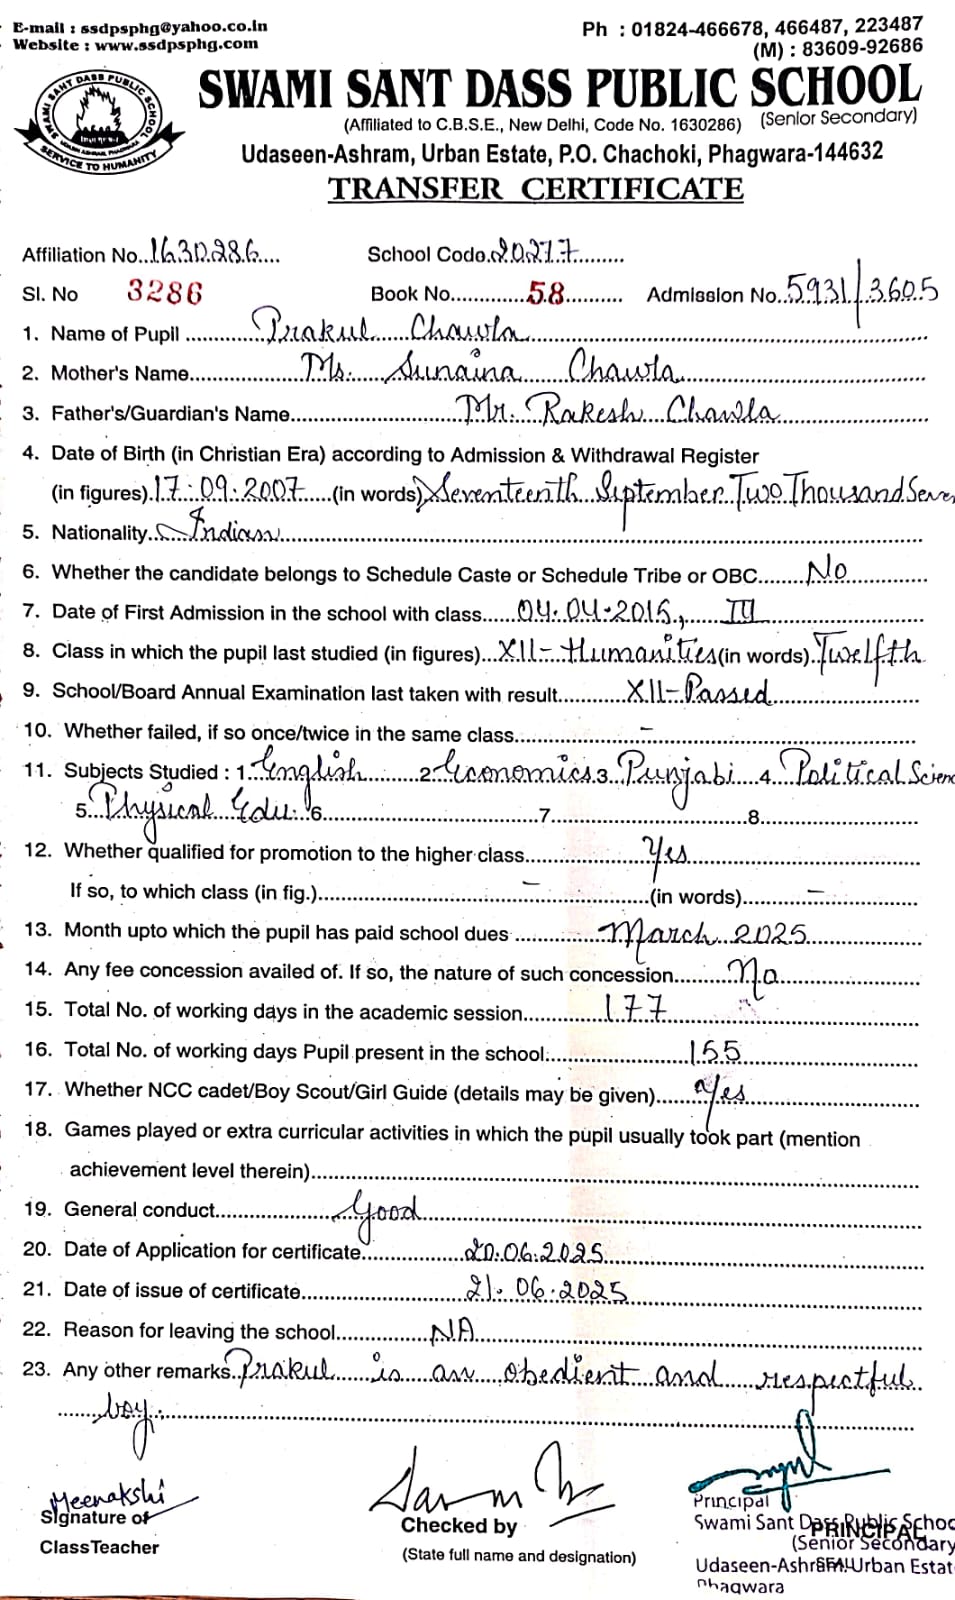 E-mail : ssdpsphg@yahoo.co.in
Website : www.ssdpsphg.com
Ph : 01824-466678, 466487, 223487
(M) : 83609-92686
SWAMI SANT DASS PUBLIC SCHOOL
SERVICE TO HUMANITY
SWAMI SANT DASS PUBLIC SCHOOL
(Affiliated to C.B.S.E., New Delhi, Code No. 1630286) (Senior Secondary)
Udaseen-Ashram, Urban Estate, P.O. Chachoki, Phagwara-144632
TRANSFER CERTIFICATE
Affiliation No. 1630286 School Code. 20277
Sl. No 3286 Book No. 58 Admission No. 5931/3605
1. Name of Pupil Prakul Chawla
2. Mother's Name Ms. Sunaina Chawla
3. Father's/Guardian's Name Mr. Rakesh Chawla
4. Date of Birth (in Christian Era) according to Admission & Withdrawal Register
(in figures). 17.09.2007 (in words) Seventeenth September Two Thousand Seven
5. Nationality Indian
6. Whether the candidate belongs to Schedule Caste or Schedule Tribe or OBC No
7. Date of First Admission in the school with class 04.04.2015, III
8. Class in which the pupil last studied (in figures) XII-Humanities (in words). Twelfth
9. School/Board Annual Examination last taken with result XII-Passed
10. Whether failed, if so once/twice in the same class –
11. Subjects Studied : 1. English 2. Economics 3. Punjabi 4. Political Scien
5. Physical Edu. 6 7 8
12. Whether qualified for promotion to the higher class Yes
If so, to which class (in fig.) – (in words) –
13. Month upto which the pupil has paid school dues March 2025
14. Any fee concession availed of. If so, the nature of such concession No
15. Total No. of working days in the academic session 177
16. Total No. of working days Pupil present in the school 155
17. Whether NCC cadet/Boy Scout/Girl Guide (details may be given) Yes
18. Games played or extra curricular activities in which the pupil usually took part (mention
achievement level therein)
19. General conduct Good
20. Date of Application for certificate 20.06.2025
21. Date of issue of certificate 21.06.2025
22. Reason for leaving the school NA
23. Any other remarks Prakul is an obedient and respectful
boy.
Meenakshi
Signature of
ClassTeacher
Checked by
(State full name and designation)
Principal
Swami Sant Dass Public School
PRINCIPAL
(Senior Secondary)
SEAL
Udaseen-Ashram Urban Estat
Phagwara